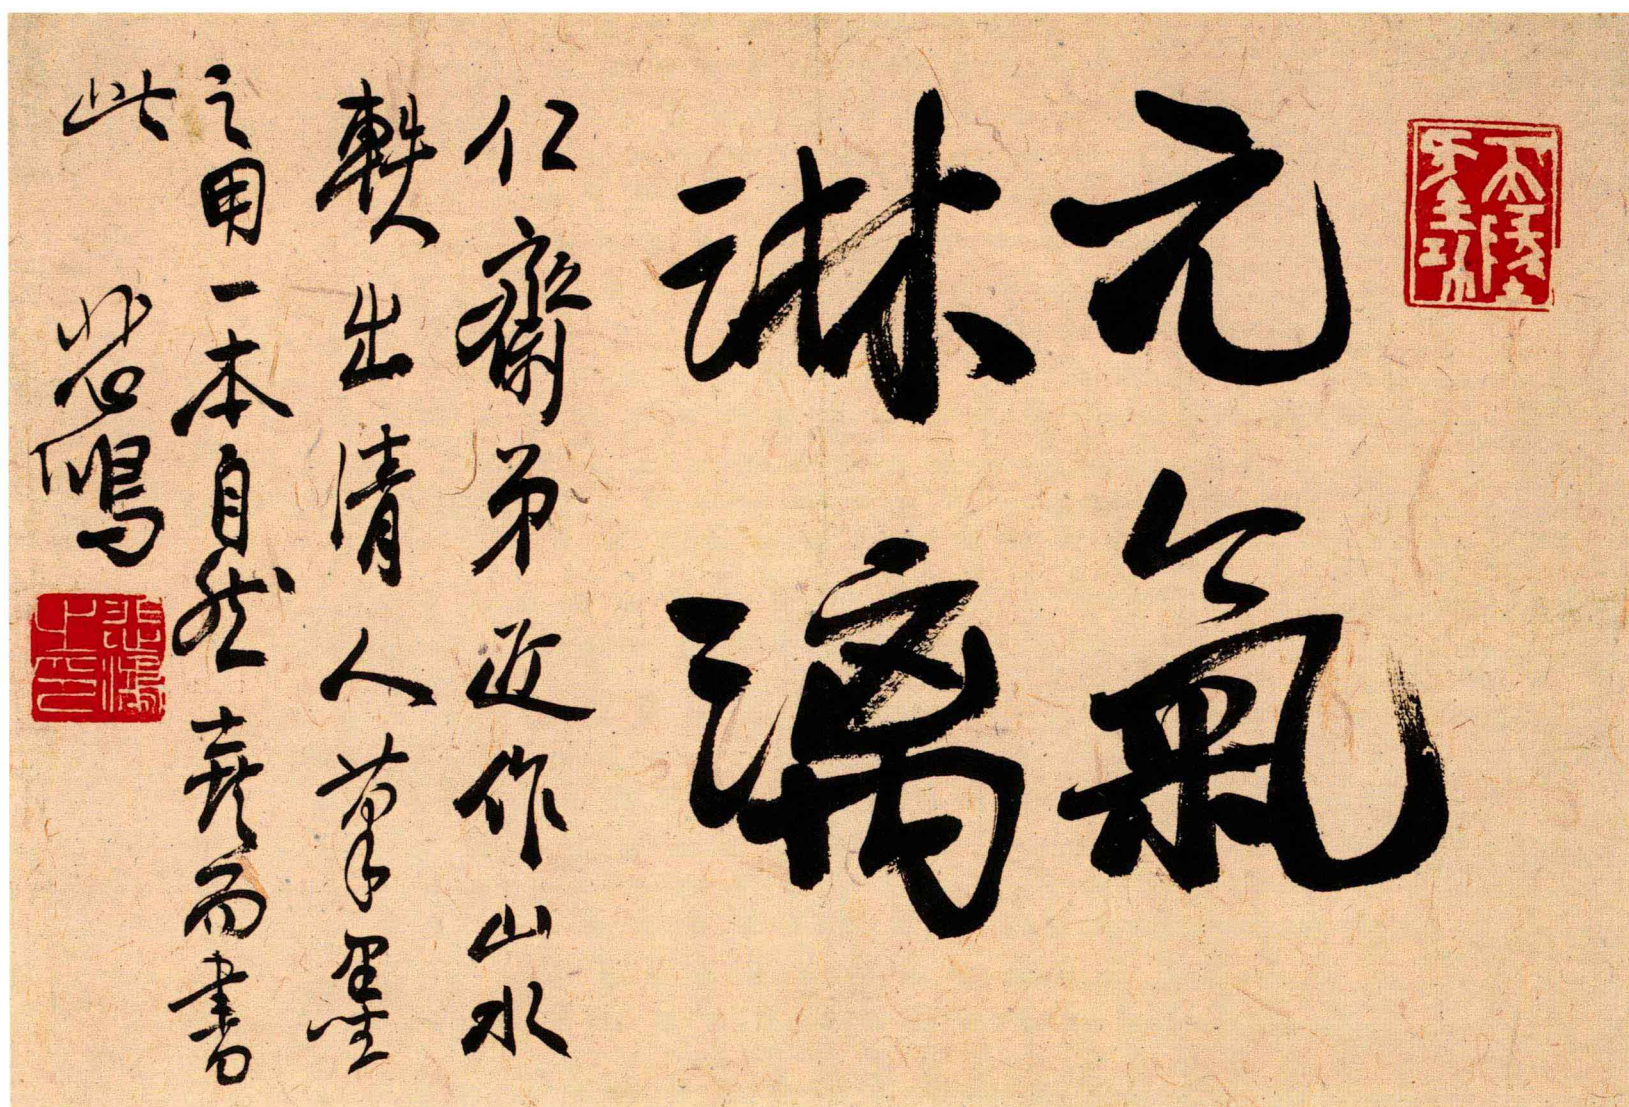 元氣
淋漓
仁齋弟近作山水
輒出清人筆墨
之用一本自然喜而書
此
悲鴻